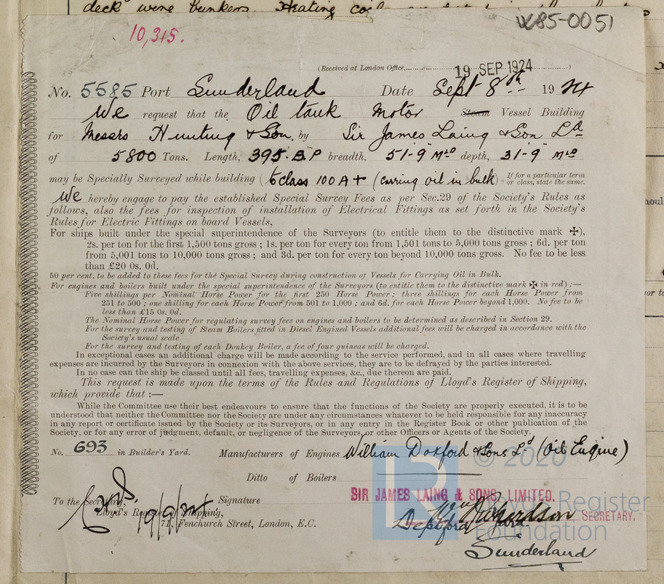 deck were bunkers. Heating coil
10,315.
W85-0051
(Received at London Office, 19 SEP 1924
No. 5585 Port Sunderland Date Sept 8th 1924
We request that the Oil tank Motor Steam Vessel Building
for Messrs Hunting & Son, by Sir James Laing & Son Ld
of 5800 Tons. Length, 395. B.P breadth, 51-9 Mld depth, 31-9 Mld
may be Specially Surveyed while building (to class 100A+ (carring oil in bulk) If for a particular term or class, state the same.
We hereby engage to pay the established Special Survey Fees as per Sec. 29 of the Society's Rules as
follows, also the fees for inspection of installation of Electrical Fittings as set forth in the Society's
Rules for Electric Fittings on board Vessels,
For ships built under the special superintendence of the Surveyors (to entitle them to the distinctive mark ✠),
2s. per ton for the first 1,500 tons gross; 1s. per ton for every ton from 1,501 to 5,000 tons gross; 6d. per ton
from 5,001 to 10,000 tons gross; and 3d. per ton for every ton beyond 10,000 tons gross. No fee to be less
than £20 0s. 0d.
50 per cent. to be added to these fees for the Special Survey during construction of Vessels for Carrying Oil in Bulk.
For engines and boilers built under the special superintendence of the Surveyors (to entitle them to the distinctive mark ✠ in red);—
Five shillings per Nominal Horse Power for the first 250 Horse Power; three shillings for each Horse Power from
251 to 500; one shilling for each Horse Power from 501 to 1,000; and 6d. for each Horse Power beyond 1,000. No fee to be
less than £15 0s. 0d.
The Nominal Horse Power for regulating survey fees on engines and boilers to be determined as described in Section 29.
For the survey and testing of Steam Boilers fitted in Diesel Engined Vessels additional fees will be charged in accordance with the
Society's usual scale
For the survey and testing of each Donkey Boiler, a fee of four guineas will be charged.
In exceptional cases an additional charge will be made according to the service performed, and in all cases where travelling
expenses are incurred by the Surveyors in connexion with the above services, they are to be defrayed by the parties interested.
In no case can the ship be classed until all fees, travelling expenses, &c., due thereon are paid.
This request is made upon the terms of the Rules and Regulations of Lloyd's Register of Shipping,
which provide that:—
While the Committee use their best endeavours to ensure that the functions of the Society are properly executed, it is to be
understood that neither the Committee nor the Society are under any circumstances whatever to be held responsible for any inaccuracy
in any report or certificate issued by the Society or its Surveyors, or in any entry in the Register Book or other publication of the
Society, or for any error of judgment, default, or negligence of the Surveyors, or other Officers or Agents of the Society.
No. 693 in Builder's Yard. Manufacturers of Engines William Doxford & Sons Ld (Oil Engine)
Ditto of Boilers
© 2020
SIR JAMES LAING & SONS, LIMITED.
To the Secretary, Signature SECRETARY.
Lloyd's Register of Shipping, 19/9/24 Deptford Yard
71, Fenchurch Street, London, E.C.
Sunderland
LR Register
Foundation